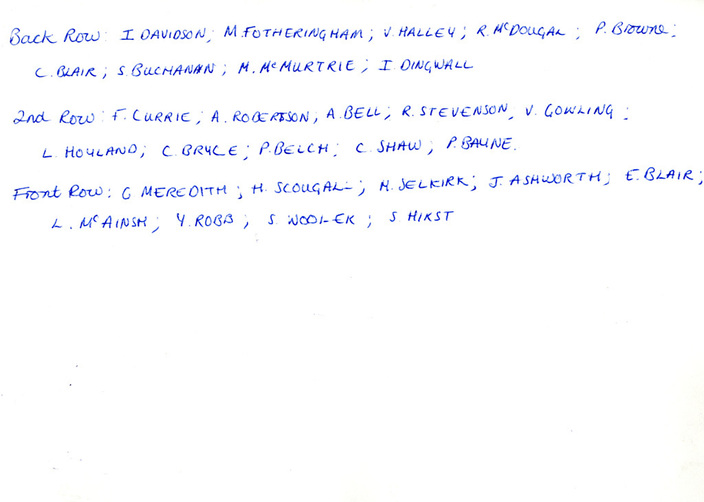 Back Row: I DAVIDSON; M. FOTHERINGHAM; V. HALLEY; R. McDOUGAL; P. Browne;
C. BLAIR; S. BUCHANAN; M. McMURTRIE; I DINGWALL
2nd Row: F. CURRIE; A. ROBERTSON, A. BELL; R. STEVENSON, V. GOWLING;
L. HOYLAND; C. BRYCE; P. BELCH; C. SHAW; P. BAYNE.
Front Row: G MEREDITH; H. SCOUGAL; M. SELKIRK; J. ASHWORTH; E. BLAIR;
L. McAINSH; Y. ROBB; S. S